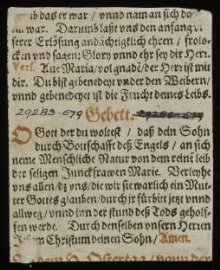 das er war / vnnd nam an sich da
war. Darumb laßt vns den anfang
serer Erlösung andächtigklich ehren / frolo-
cken vnd sagen: Glory vnnd ehr sey dir Herr.
Vers. Aue Maria / vol gnade / der Herr ist mit
dir. Du bist gebenedeyt vnder den Weibern /
vnnd gebenedeyt ist die Frucht deines Leibs.
29283-679 Gebett.
O Gott der du woltest / daß dein Sohn
durch Bottschafft deß Engels / an sich
neme Menschliche Natur von dem reinē leib
der seligen Junckfrawen Marie. Verleyhe
vns allen dz vns / die wir sie warlich ein Mut-
ter Gottes glauben / durch jr fürbitt jetzt vnnd
allweg / vnnd inn der stund deß Tods geholf-
fen werde. Durch denselben vnsern Herren
Jesum Christum deinen Sohn / Amen.